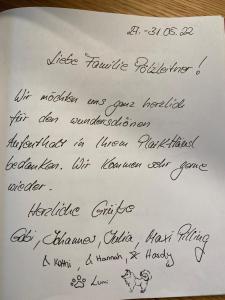 27.-31.05.22
Liebe Familie Pölzleitner!
Wir möchten uns ganz herzlich
für den wunderschönen
Aufenthalt in Ihrem
bedanken. Wir kommen sehr gerne
wieder.
Herzliche Grüße
Gabi, Johannes, Julia, Maxi Pilling
& Kathi, & Hannah, & Hardy
Luni